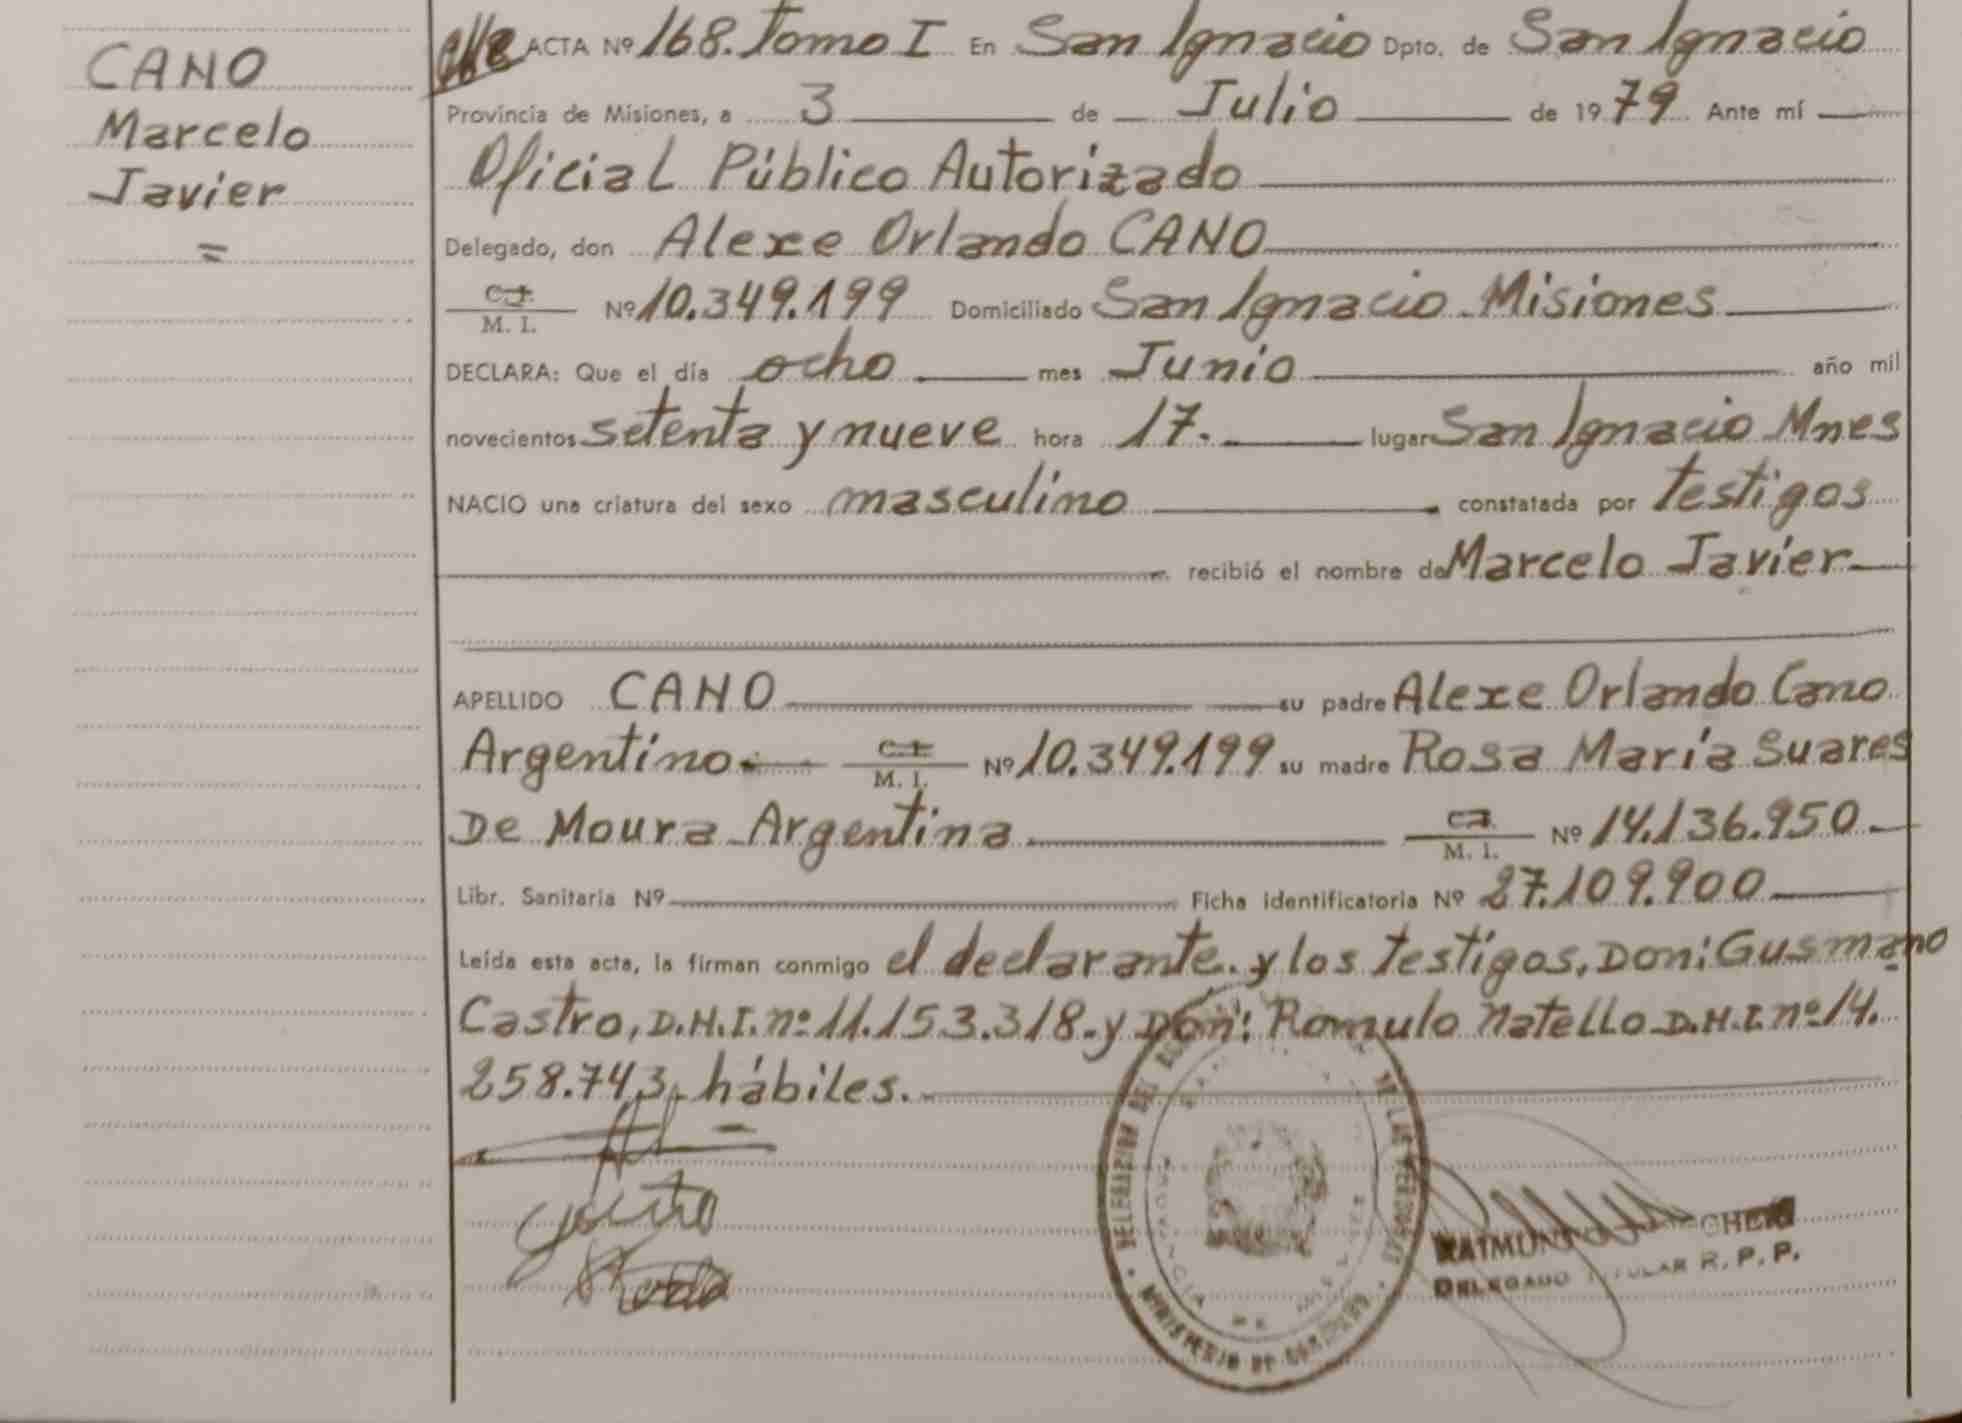 CANO
Marcelo
Javier
=
ACTA Nº 168. Tomo I En San Ignacio Dpto. de San Ignacio
Provincia de Misiones, a 3 de Julio de 1979 Ante mí
Oficial Público Autorizado
Delegado, don Alexe Orlando CANO
C.I.
M. I. Nº 10.349.199 Domiciliado San Ignacio - Misiones
DECLARA: Que el día ocho mes Junio año mil
novecientos setenta y nueve hora 17. lugar San Ignacio Mnes
NACIO una criatura del sexo masculino constatada por testigos
recibió el nombre de Marcelo Javier
APELLIDO CANO su padre Alexe Orlando Cano
Argentino C.I. M. I. Nº 10.349.199 su madre Rosa María Suares
De Moura Argentina C.I. M. I. Nº 14.136.950
Libr. Sanitaria Nº Ficha identificatoria Nº 27.109.900
Leída esta acta, la firman conmigo el declarante. y los testigos, Don: Gusmano
Castro, D.N.I. nº 11.153.318. y Don: Romulo Natello D.N.I. nº 14.
258.743, hábiles.
DELEGACION DEL DE LAS PERSONAS
MINISTERIO DE GOBIERNO
PROVINCIA DE MISIONES
DELEGADO TITULAR R. P. P.